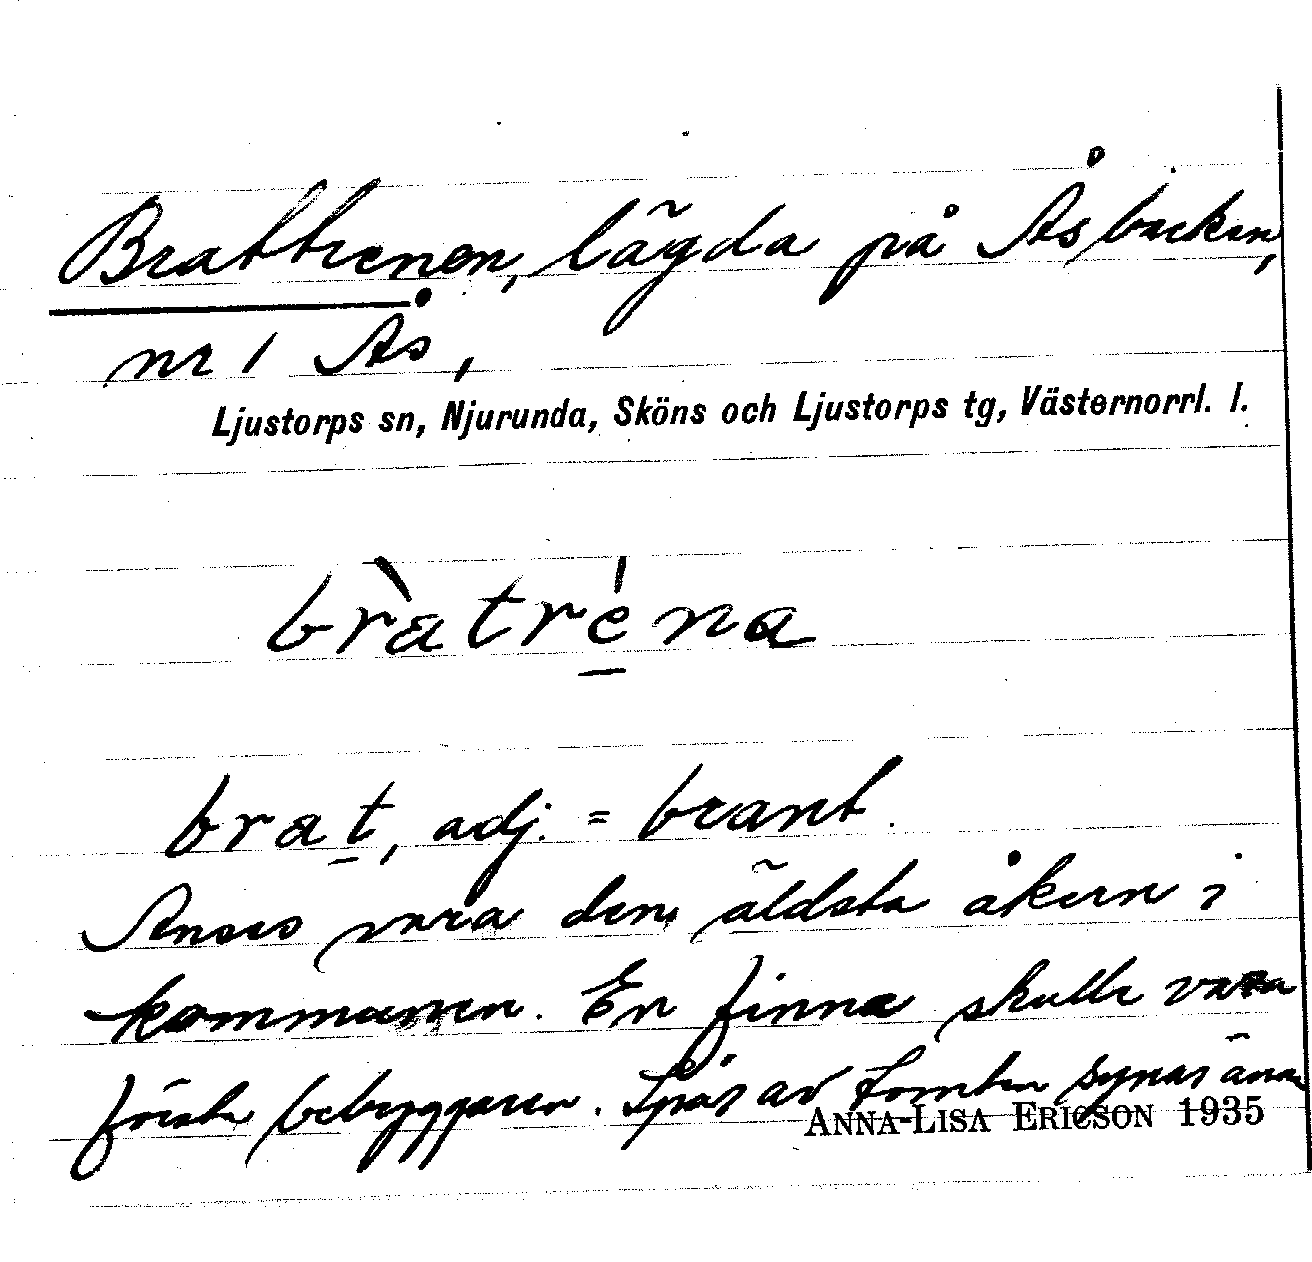 Brattrenen, lägda på Åsbacken,
nr 1 Ås,
Ljustorps sn, Njurunda, Sköns och Ljustorps tg, Västernorrl. l.
bràtréna
brat, adj. = brant.
Anses vara den äldsta åkern i
kommunen. En finne skulle vara
förste bebyggaren. Spår av tomten synas ännu
ANNA-LISA ERICSON 1935